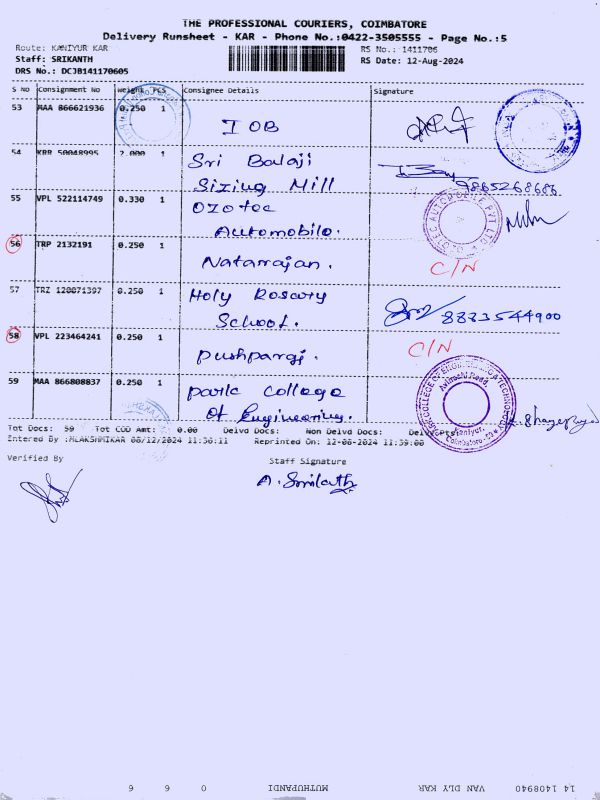 THE PROFESSIONAL COURIERS, COIMBATORE
Delivery Runsheet - KAR - Phone No.:0422-3505555 - Page No.:5
Route: KANIYUR KAR RS No.: 1411706
Staff: SRIKANTH RS Date: 12-Aug-2024
DRS No.: DCJB141170605
S No Consignment No Weight PCS Consignee Details Signature
53 MAA 866621936 0.250 1
IOB
54 KRR 50048995 2.000 1 Sri Balaji
Sizing Mill 9865268686
55 VPL 522114749 0.330 1 Ozotec
Automobile.
56 TRP 2132191 0.250 1
Natarajan. C/N
57 TRZ 120871397 0.250 1 Holy Rosary
School. 8883544900
58 VPL 223464241 0.250 1 C/N
59 MAA 866808837 0.250 1 Park College
Of Engineering.
Tot Docs: 59 Tot COD Amt: 0.00 Delvd Docs: Non Delvd Docs: Delvd Pts:
Entered By :MLAKSHMIKAR 08/12/2024 11:38:11 Reprinted On: 12-08-2024 11:39:00
Verified By Staff Signature
A. Srikanth
14 1408940 VAN DLY KAR MUTHUPANDI 0 6 6